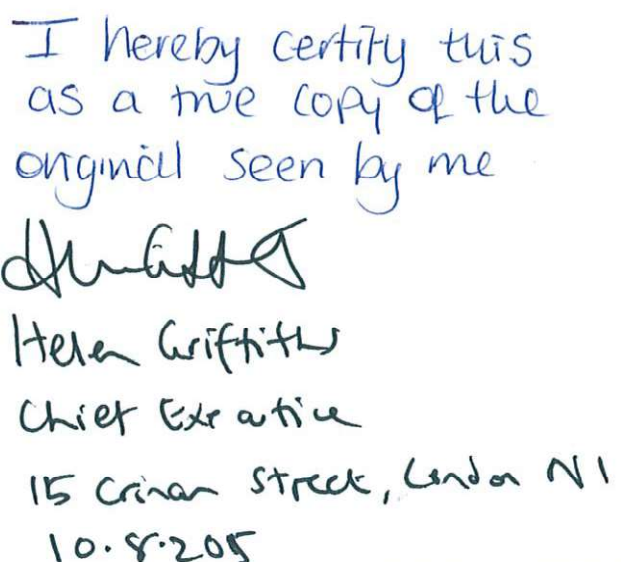 I hereby certify this
as a true copy of the
original seen by me
Helen Griffiths
Chief Executive
15 Crinan Street, London N1
10.8.205